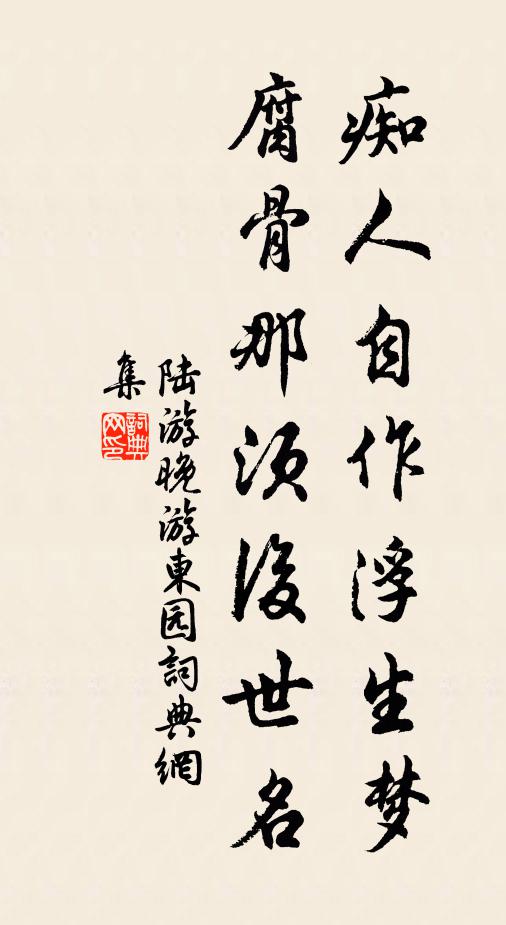 痴人自作浮生梦
腐骨那须后世名
陆游晚游東园詞典網
集
詞典
网印